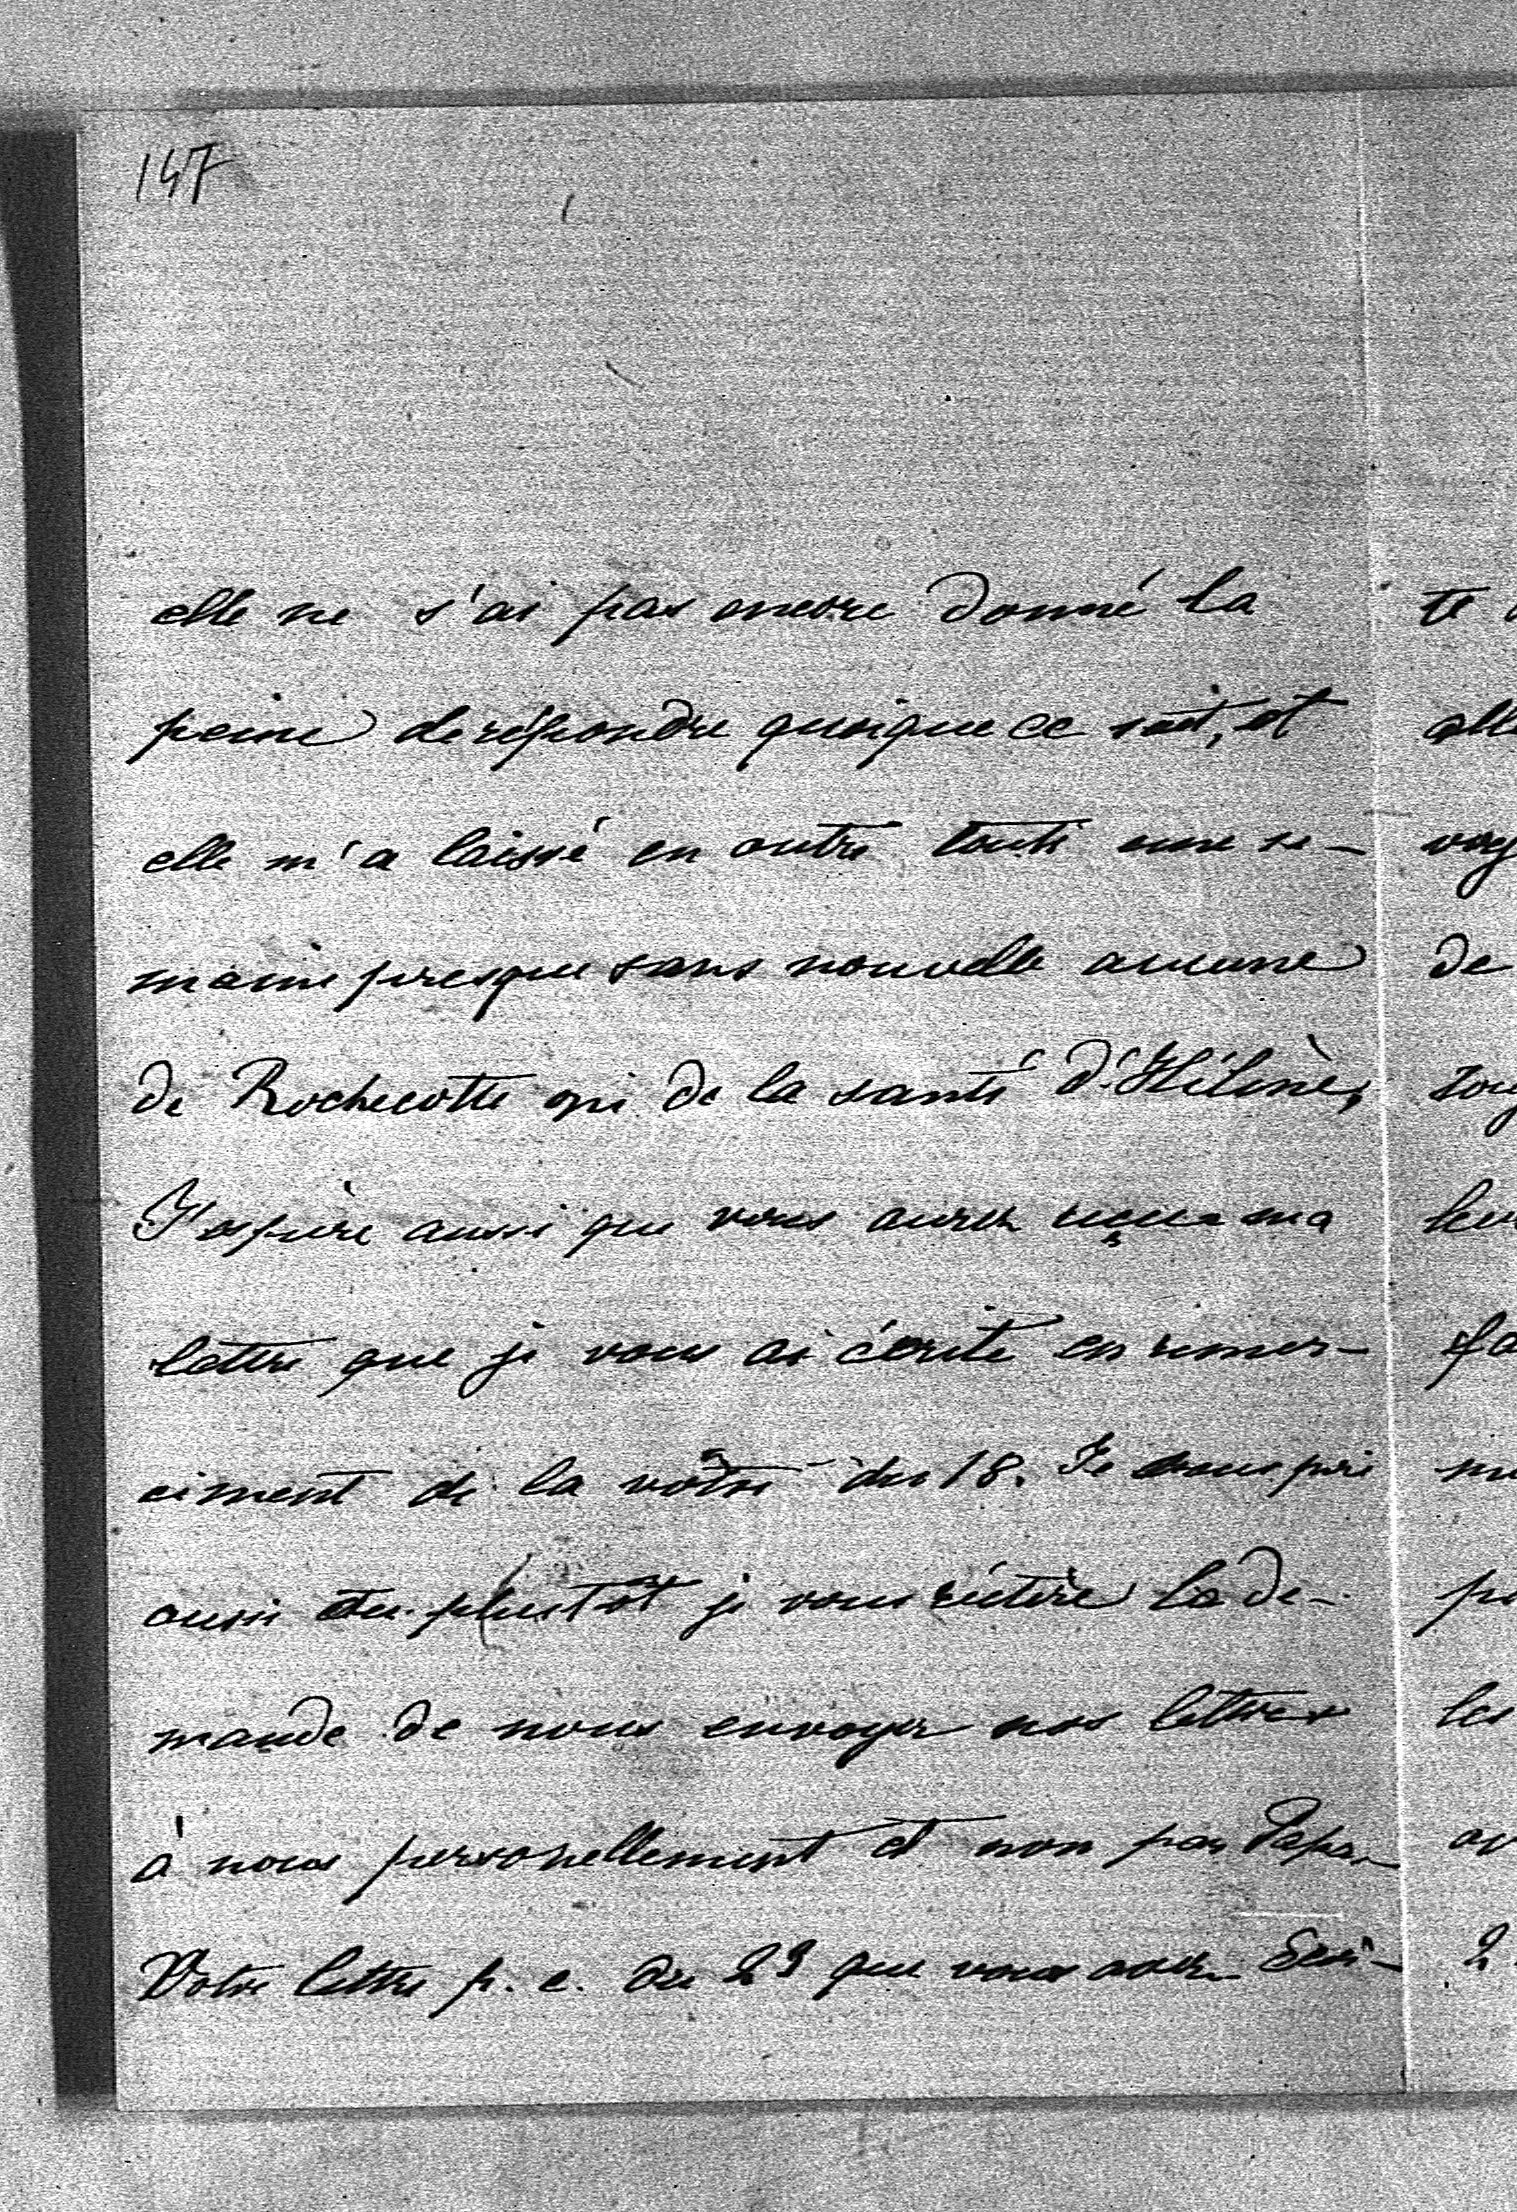 147
elle ne s'ai pas encore donné la
peine de répondre quoique ce soit, et
elle m'a laissé en outre toute une se-
maine presque sans nouvelle aucune
de Rochecotte ni de la santé d'Hélène,
J'espère aussi que vous aurez reçue ma
lettre que je vous ai écrite en remer-
ciment de la vôtre du 18. Je vous prie
aussi ou plutôt je vous réitère la de-
mande de nous envoyer nos lettres
à nous personellement et non par Papa.
Votre lettre p. e. du 23 que vous avez écri-